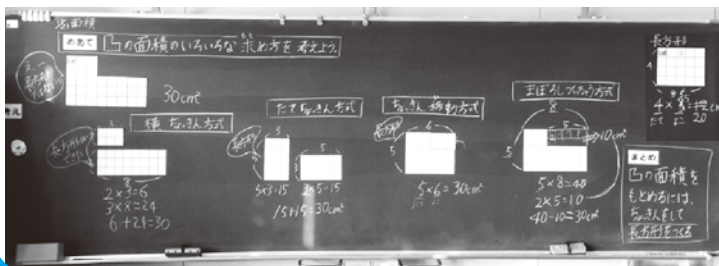 面積
めあて 凸の面積のいろいろな求め方を考えよう。
30cm²
横ちょっきん方式
8
2×3=6
3×8=24
6+24=30
たてちょっきん方式
3
5
5
3
5×3=15
3×5=15
15+15=30cm²
ちょっきん移動方式
6
5
5×6=30cm²
まぼろし
方式
8
5
5
10cm²
5×8=40
2×5=10
40-10=30cm²
長方形
4
4×
たて
20
まとめ
凸の面積を
もとめるには、
ちょっきんをして
長方形をつくる